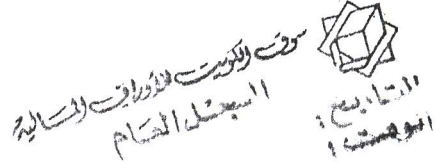 سوق الكويت للأوراق المالية
السجل العام
التاريخ :
الوقت :